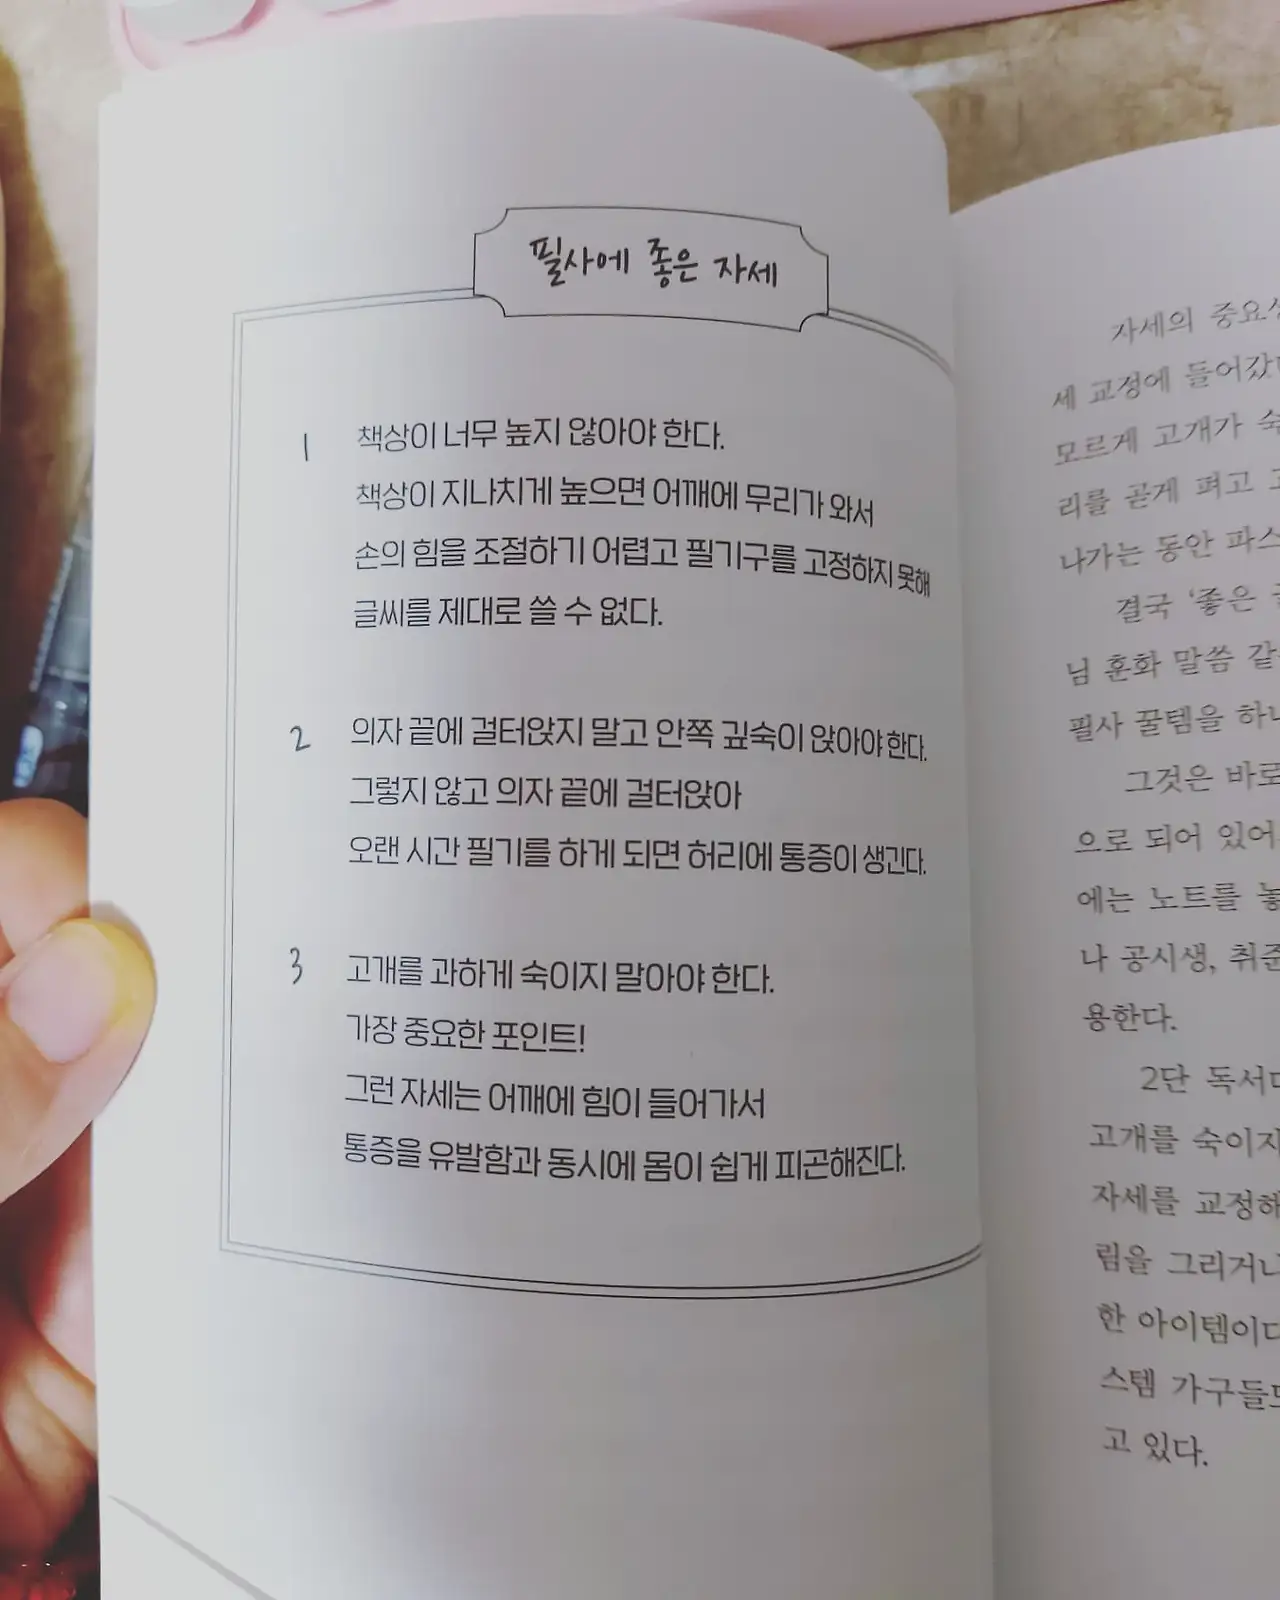 필사에 좋은 자세
1 책상이 너무 높지 않아야 한다.
책상이 지나치게 높으면 어깨에 무리가 와서
손의 힘을 조절하기 어렵고 필기구를 고정하지 못해
글씨를 제대로 쓸 수 없다.
2 의자 끝에 걸터앉지 말고 안쪽 깊숙이 앉아야 한다.
그렇지 않고 의자 끝에 걸터앉아
오랜 시간 필기를 하게 되면 허리에 통증이 생긴다.
3 고개를 과하게 숙이지 말아야 한다.
가장 중요한 포인트!
그런 자세는 어깨에 힘이 들어가서
통증을 유발함과 동시에 몸이 쉽게 피곤해진다.
자세의
세 교정에
모르게 고개가
리를 곧게 펴고
나가는 동안
결국 '좋은
님 훈화 말씀
필사 꿀템을
그것은 바로
으로 되어 있어
에는 노트를
나 공시생,
용한다.
2단
고개를
자세를
림을
한
스템
고 있다.